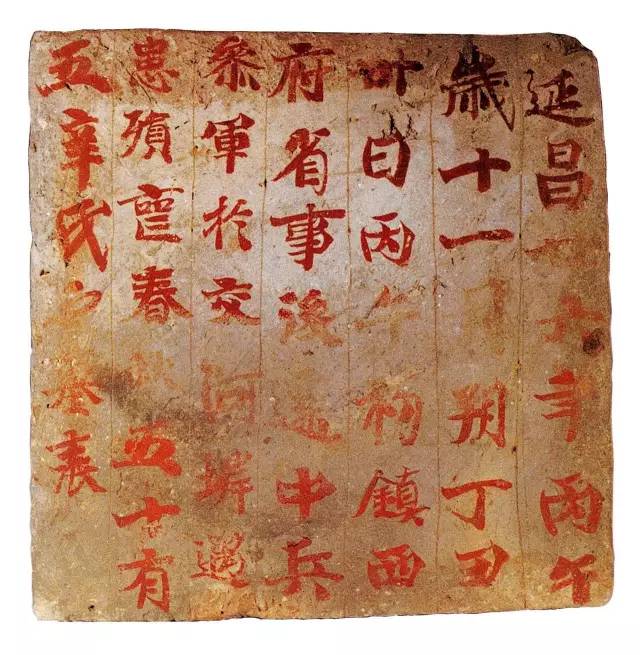 延昌廿六年丙午
歲十一月朔丁丑
卅日丙午初鎮西
府省事後遷中兵
叅軍於交河遇
患殞喪春秋五十有
五辛氏之墓表